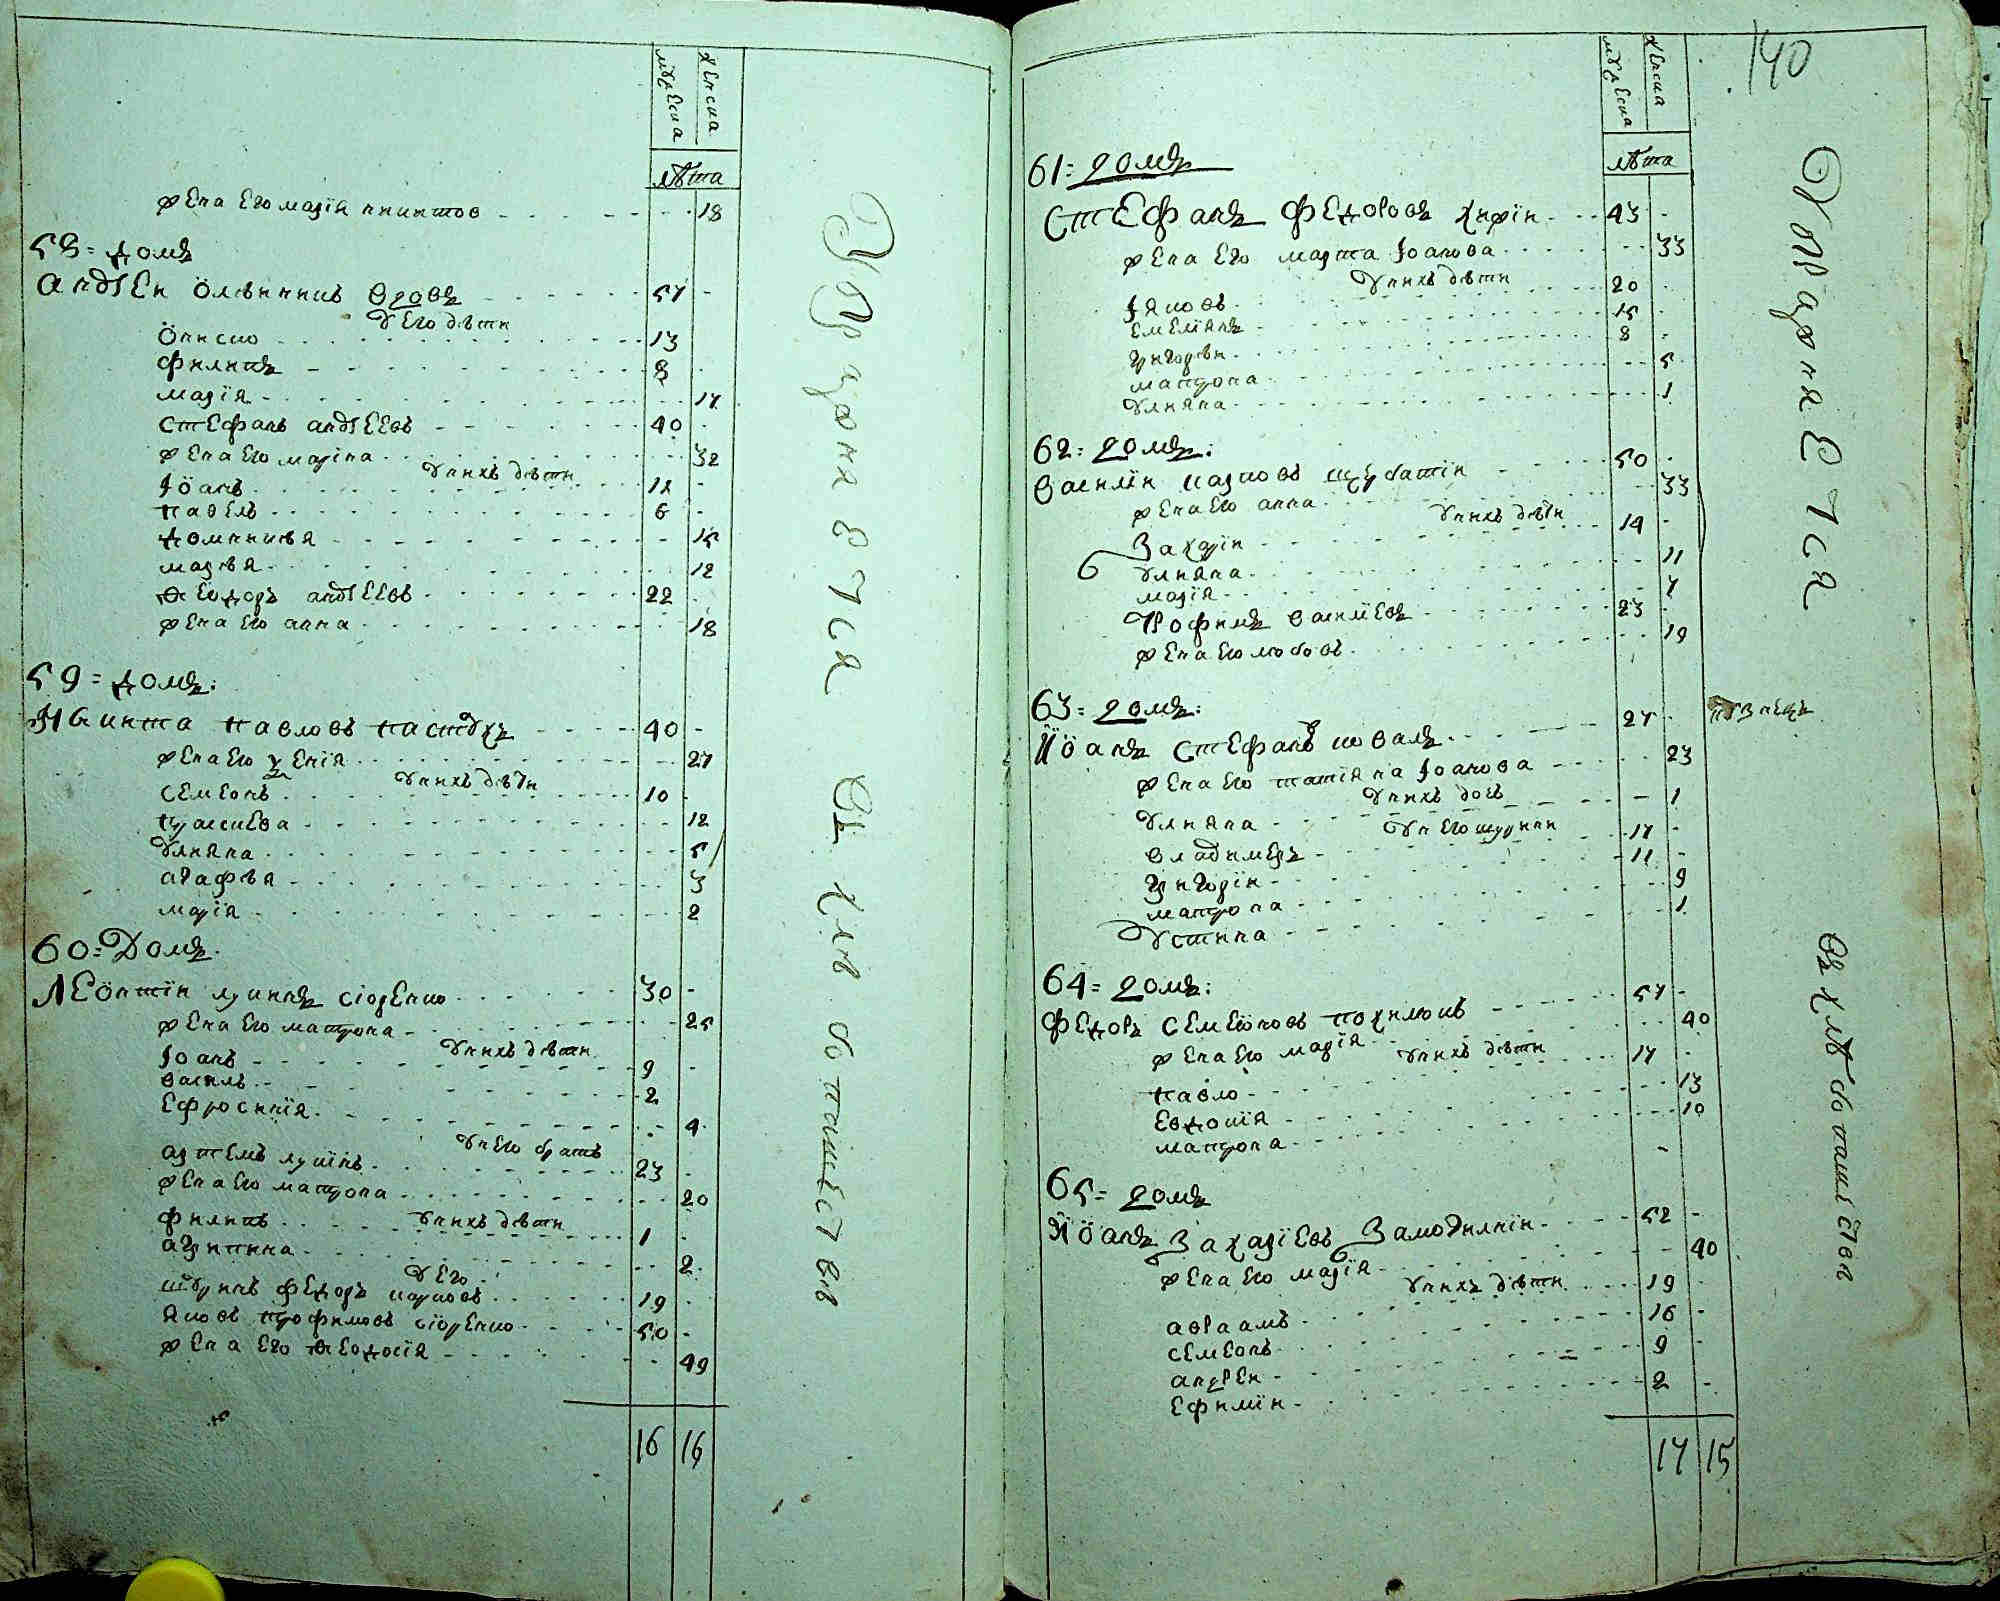 мꙋжеска
женска
лѣта
жена его марія никитов 18
58 = домъ
андрей олѣйникъ вдовъ 57 -
у его дѣти
ониско 13
филипъ 8
марія 17
стефанъ андреевъ 40
жена его марина 32
у нихъ дѣти
іоанъ 12
павелъ 6
домникія 15
марѣя 12
ѳеодоръ андреевъ 22
жена его анна 18
59 = домъ:
никита павловъ пастухъ 40 -
жена его ксенія 27
у нихъ дѣти
семеонъ 10
праскева 12
уляна 5
агафѣя 3
марія 2
60 = Домъ.
леонтій лукинъ сіоренко 30 -
жена его матрона 25
у нихъ дѣти
іоанъ 9
василь 2
ефросинія 4
у него братъ
артемъ лукінъ 23
жена его матрона 20
у нихъ дѣти
филипъ 1
агрипина 2
у его
шуринъ федоръ карповъ 19
яковъ трофимовъ сіоренко 50 -
жена его ѳеодосія 49
16 16
Упражняются въ хлѣбопашествѣ
140
мꙋжеска
женска
лѣта
61 = домъ
стефанъ федоровъ 43 -
жена его марта іоанова 33
у нихъ дѣти
іяковъ 20
емеліянъ 15
григорѣй 8
матрона 5
уляна 1
62 = домъ:
василій карповъ щербатій 50 -
жена его анна 33
у нихъ дѣти
захарій 14
уляна 11
марія 7
трофимъ василіевъ 23
жена его любовъ 19
63 = домъ:
іоанъ стефановъ коваль 27
жена его татіяна іоанова 23
у нихъ дочь
уляна 1
у него шурини
владимеръ 17
григорій 11
матрона 9
устина 1
64 = домъ:
федоръ семеоновъ похилюкъ 57 -
жена его марія 40
у нихъ дѣти
павло 17
евдокія 13
матрона 10
65 = домъ
іоанъ захаріевъ замогилній 52 -
жена его марія 40
у нихъ дѣти
авраамъ 19
семеонъ 16
андрей 9
ефимій 2
17 15
Упражняется
въ хлѣбопашествѣ